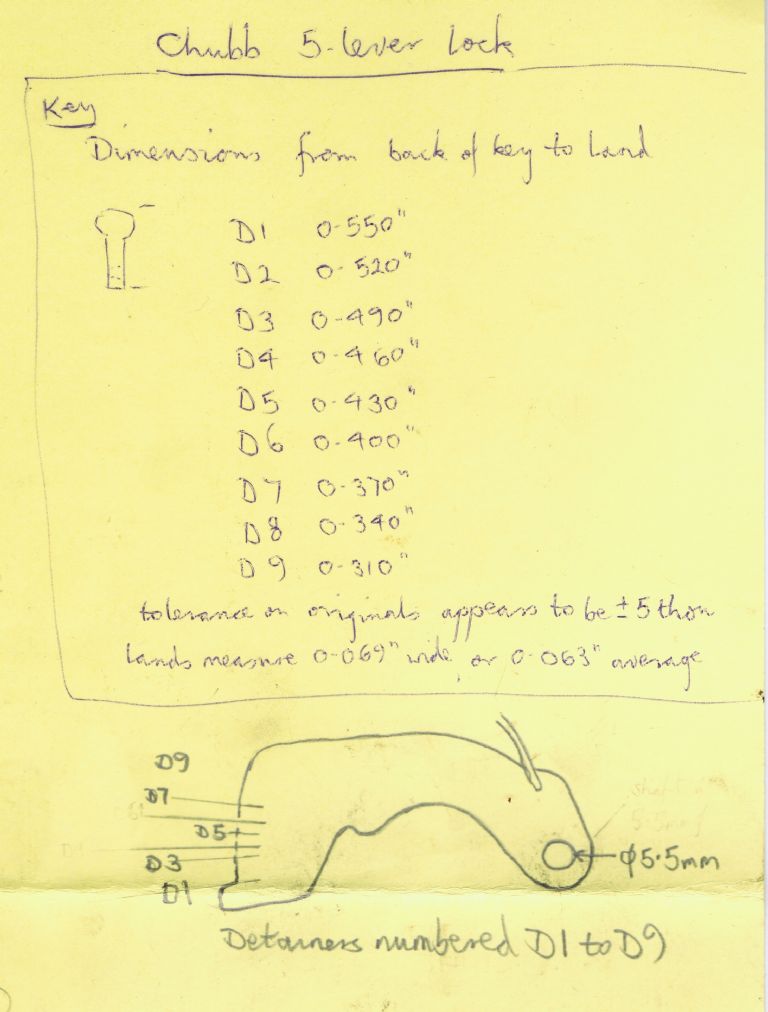 Chubb 5-lever lock
Key
Dimensions from back of key to land
D1 0-550"
D2 0-520"
D3 0-490"
D4 0-460"
D5 0-430"
D6 0-400"
D7 0-370"
D8 0-340"
D9 0-310"
tolerance on originals appears to be ± 5 thou
lands measure 0-069" wide, or 0-063" average
D9
D7
D5
D3
D1
φ5.5mm
Detainers numbered D1 to D9